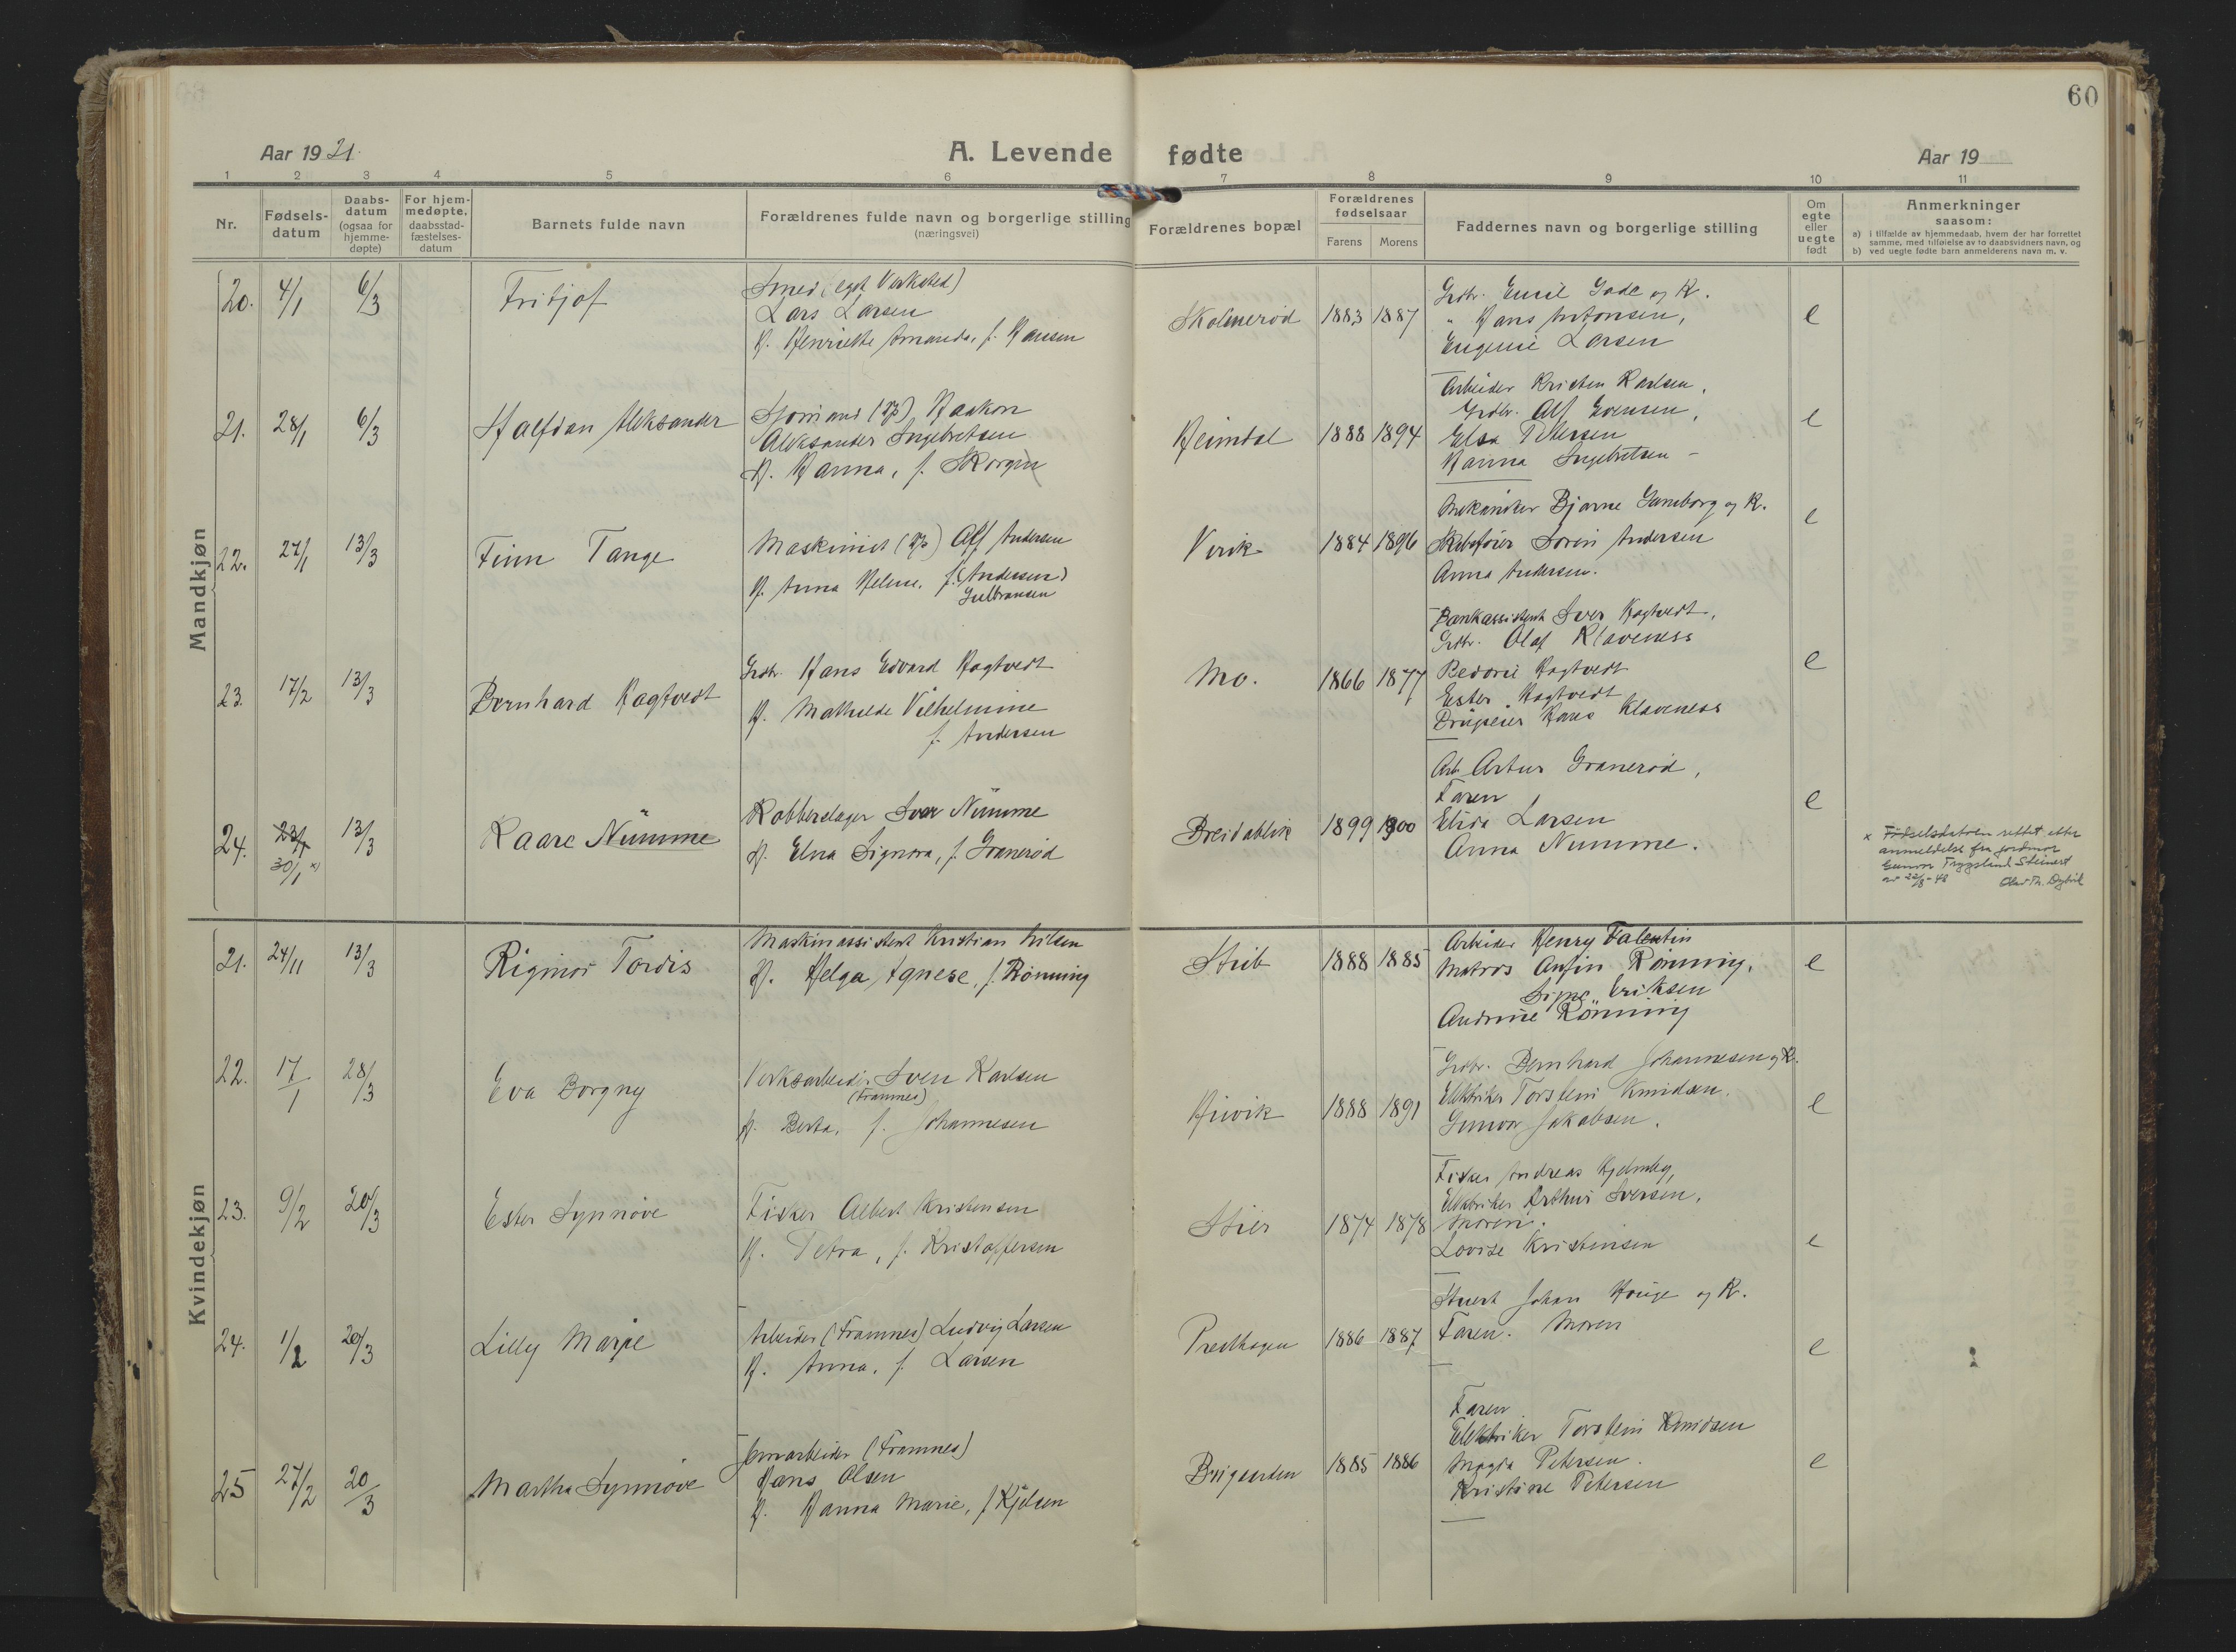 60
Aar 1921.
A. Levende fødte
Aar 19
1 2 3 4 5 6 7 8 9 10 11
Nr.
Fødsels-
datum
Daabs-
datum
(ogsaa for
hjemme-
døpte)
For hjem-
medøpte.
daabsstad-
fæstelses-
datum
Barnets fulde navn
Forældrenes fulde navn og borgerlige stilling
(næringsvei)
Forældrenes bopæl
Forældrenes
fødselsaar
Farens Morens
Faddernes navn og borgerlige stilling
Om
egte
eller
uegte
født
Anmerkninger
saasom:
a) i tilfælde av hjemmedaab, hvem der har forrettet
samme, med tilføielse av to daabsvidners navn, og
b) ved uegte fødte barn anmelderens navn m. v.
Mandkjøn
20. 4/1 6/3 Fritjof
Smed (eget Verksted)
Lars Larsen
H. Henriette Amanda, f. Hansen
Skolmerød 1883 1887
Grdbr. Emil Gade og K.
" Hans Antonsen,
Eugenie Larsen
e
21. 28/1 6/3 Halfdan Aleksander
Sjømand Haakon
Aleksander Ingebretsen
H. Hanna, f. Skorgin
Heimdal 1888 1894
Arbeider Kristen Karlsen,
Grdbr. Alf Evensen,
Elsa Petersen
Hanna Ingebretsen
e
22. 27/1 13/3 Finn Tange
Maskinist Alf Andersen
H. Anna Helene, f. (Andersen)
Gulbransen
Virik 1884 1896
Mekaniker Bjarne Ganeborg og K.
Skibsfører Søren Andersen
Anna Andersen.
e
23. 17/2 13/3 Bernhard Hagtvedt
Grdbr. Hans Edvard Hagtvedt
H. Mathilde Vilhelmine
f. Andersen
Mo. 1866 1877
Bankassistent Iver Hagtvedt,
Grdbr. Olaf Klaveness
Hagtvedt
Ester Hagtvedt
Hans Klaveness
e
24. 23/1 30/1 x) 13/3 Kaare Numme
Kobberslager Iver Numme
H. Elna Signora, f. Granerød
Breidablik 1899 1900
Arb. Artur Granerød,
Faren
Elida Larsen
Anna Numme.
e
x Fødselsdatoen rettet etter
anmeldelse fra jordmor
Gunvor Trygsland Steinert
av 22/8-48
Kvindekjøn
21. 24/11 13/3 Rigmor Tordis
Maskinassistent Kristian Nilsen
H. Helga Agnese, f. Rönning
Stub 1888 1885
Arbeider Henry Falentin
Matros Anfin Rönning,
Signe Eriksen
Andrine Rönning
e
22. 17/1 28/3 Eva Borgny
Verksarbeider Sven Karlsen
(Framnes)
H. Berta, f. Johannesen
Huvik 1888 1891
Grdbr. Bernhard Johannesen og K.
Elektriker Torstein Knudsen.
Gunvor Jakobsen.
e
23. 9/2 20/3 Ester Synnöve
Fisker Albert Kristensen
H. Petra, f. Kristoffersen
1874 1878
Fisker Andreas Hjelmby,
Elektriker Arthur Iversen,
Moren.
Lovise Kristensen
e
24. 1/2 20/3 Lilly Marie
Arbeider (Framnes) Ludvig Larsen
H. Anna, f. Larsen
Presthagen 1886 1887
Stuert Johan Hauge og K.
Faren. Moren
e
25 27/2 20/3 Martha Synnöve
Jernarbeider (Framnes)
Hans Olsen
H. Hanna Marie, f. Kjelsen
1885 1886
Faren
Elektriker Torstein Knudsen
Magda Petersen.
Kristine Petersen
e